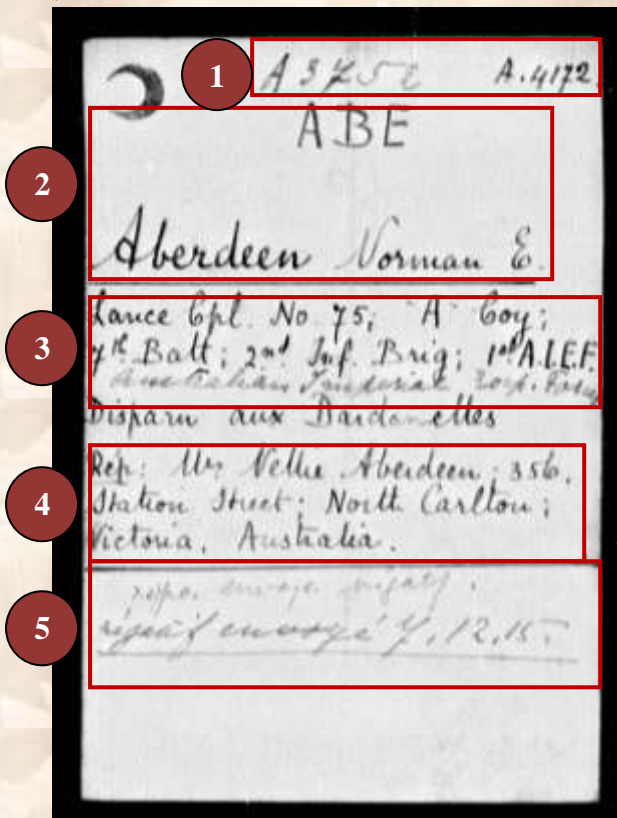 1
A 3752 A.4172.
2
ABE
Aberdeen Norman E.
3
Lance Cpl. No 75; "A" Coy;
7th Batt; 2nd Inf. Brig; 1st A.I.E.F.
Australian Imperial Exp. Force
Disparu aux Dardanelles
4
Rép: Mrs Nellie Aberdeen; 356,
Station Street; North Carlton;
Victoria, Australia.
5
envoyé négatif.
négatif envoyé 7.12.15.